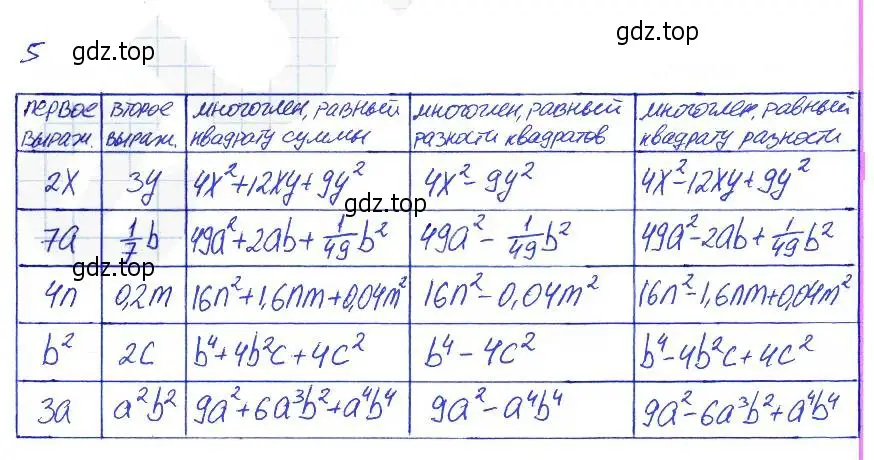 gdz.top
gdz.top
5
первое выраж. второе выраж. многочлен, равный квадрату суммы многочлен, равный разности квадратов многочлен, равный квадрату разности
2x 3y 4x²+12xy+9y² 4x²-9y² 4x²-12xy+9y²
gdz.top
7a 1/7 b 49a²+2ab+1/49 b² 49a²-1/49 b² 49a²-2ab+1/49 b²
gdz.top
4n 0,2m 16n²+1,6nm+0,04m² 16n²-0,04m² 16n²-1,6nm+0,04m²
b² 2c b⁴+4b²c+4c² b⁴-4c² b⁴-4b²c+4c²
3a a²b² 9a²+6a³b²+a⁴b⁴ 9a²-a⁴b⁴ 9a²-6a³b²+a⁴b⁴